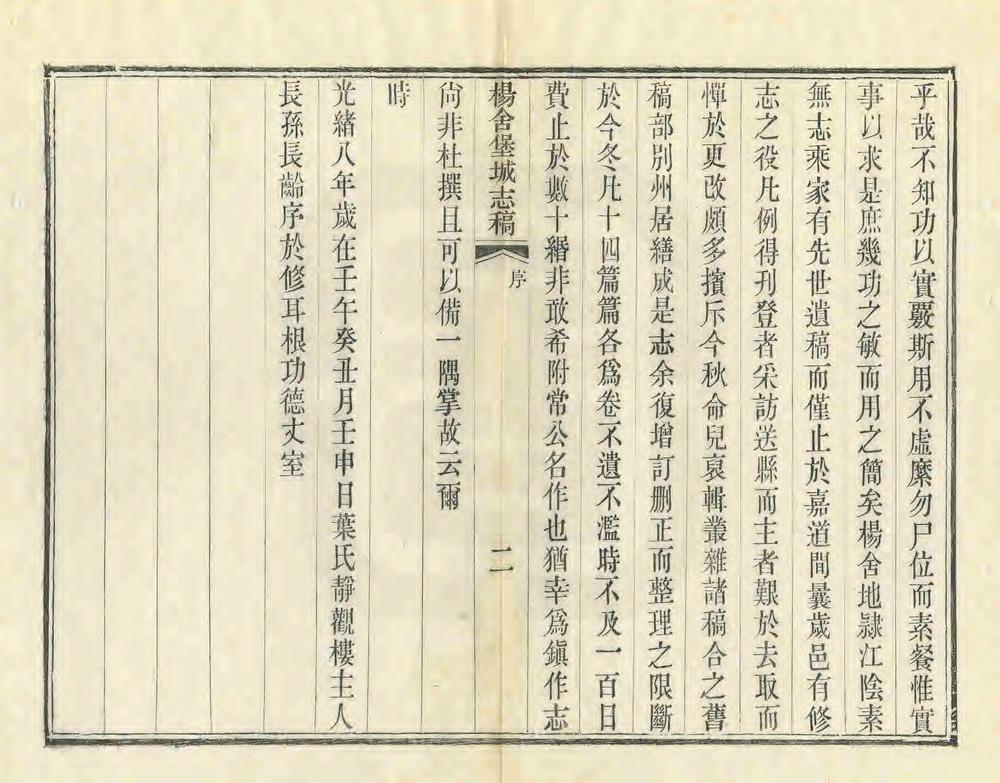 乎哉不知功以實覈斯用不虛縻勿尸位而素餐惟實
事以求是庶幾功之敏而用之簡矣楊舍地隸江陰素
無志乘家有先世遺稿而僅止於嘉道間曩歲邑有修
志之役凡例得刊登者采訪送縣而主者艱於去取而
憚於更改頗多擯斥今秋命兒裒輯叢雜諸稿合之舊
稿部別州居繕成是志余復增訂删正而整理之限斷
於今冬凡十四篇篇各爲卷不遺不濫時不及一百日
費止於數十緡非敢希附常公名作也猶幸爲鎭作志
楊舍堡城志稿
序
二
尙非杜撰且可以備一隅掌故云爾
時
光緒八年歲在壬午癸丑月壬申日葉氏靜觀樓主人
長孫長齡序於修耳根功德丈室